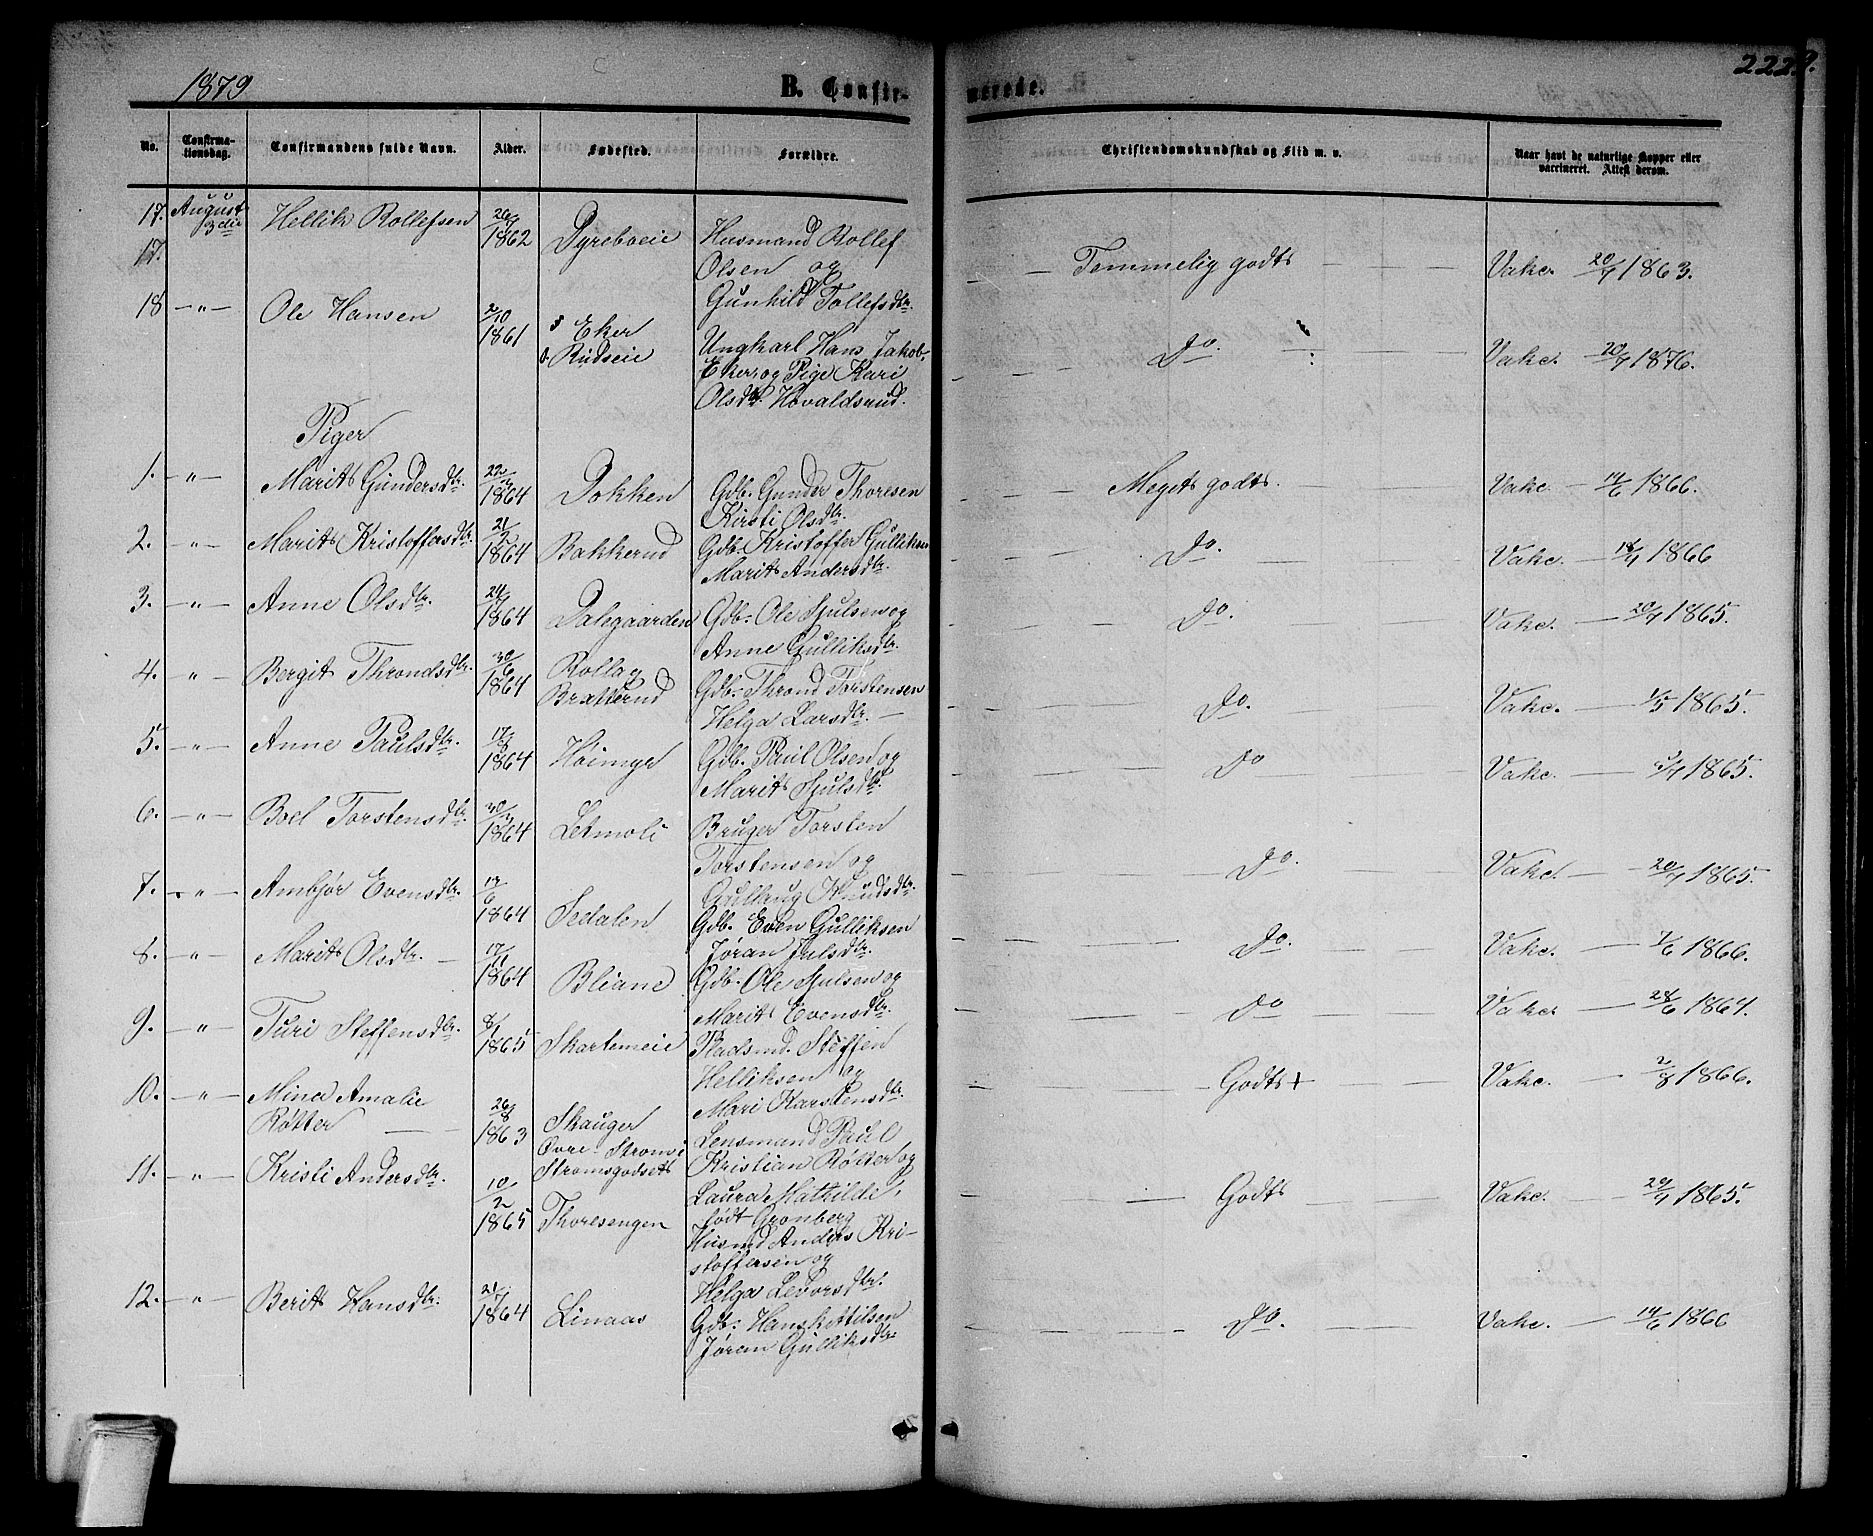 1879
B. Confir-
merede.
2229.
No.
Confirma-
tionsdag.
Confirmandens fulde Navn.
Alder.
Fødested.
Forældre.
Christendomskundskab og Flid m. v.
Naar havt de naturlige Kopper eller
vaccineret. Attest derom.
17. August 3die Hellik Rollefsen 26/9 1862 Dyreboeie Husmand Rollef
17.
Olsen og
Gunhild Tollefsdtr.
Temmelig godt Vakc. 20/7 1863.
18 — " — Ole Hansen 2/10 1861 Eker
Rudseie
Ungkarl Hans Jakob-
Eker og Pige Kari
Olsdtr. Hovaldsrud.
Do. Vakc. 20/7 1876.
Piger
1. — " — Marit Gundersdtr. 1864 Dokken Gdb. Gunder Thoresen
Kirsti Olsdtr.
Meget godt. Vakc — 14/6 1866.
2. — " — Marit Kristoffersdtr. 21/2 1864 Bakkerud Gdb. Kristoffer Gulliksen
Marit Andersdtr.
Do. Vakc. — 1866
3. — " — Anne Olsdtr. 1864 Dalegaarden Gdb. Ole Hjulsen og
Anne Gulliksdtr.
Do. Vakc. — 20/7 1865.
4. — " — Bergit Throndsdtr. 30/6 1864 Rollag
Bratterud
Gdb. Thrond Torstensen
Helga Larsdtr. —
Do. Vakc. — 1/5 1865.
5. — " — Anne Paulsdtr. 17/8 1864 Høimyr Gdb. Paul Olsen og
Marit Hjulsdtr.
Do Vakc. — 1865.
6. — " — Boel Torstensdtr. 1864 Letmoli Bruger Torsten
Torstensen og
Gullaug Knudsdtr.
Do. Vakc. — 20/7 1865.
7. — " — Ambjør Evensdtr. 1864 Sedalen
Gdb. Even Gulliksen
Jøran Julsdtr.
Do. Vakc. — 1866.
8. — " — Marit Olsdtr. — 17/11 1864 Bliane Gdb. Ole Hjulsen og
Marit Evensdtr.
Do Vakc — 28/6 1864.
9. — " — Turi Steffensdtr. 8/1 1865 Skartemeie Pladsmd. Steffen
Helliksen og
Mari Karstensdtr.
Godt + Vakc. 2/8 1866.
10. — " — Mina Amalie
Røtter —
26/8 1863 Skauger
Øvre-Strømsø
Strømsgodset
Lensmand Paul
Kristian Røtter og
Laura Mathilde,
født Grønberg
Godt Vakc. — 1865.
11. — " — Kristi Andersdtr. 10/2 1865 Thoresengen
Husmd Anders Kri-
stoffersen og
Helga Levorsdtr.
12. — " — Berit Hansdtr. 21/7 1864 Linaas
Gdb. Hans Kittilsen
Jøran Gulliksdtr
Do. Vakc. — 14/6 1866